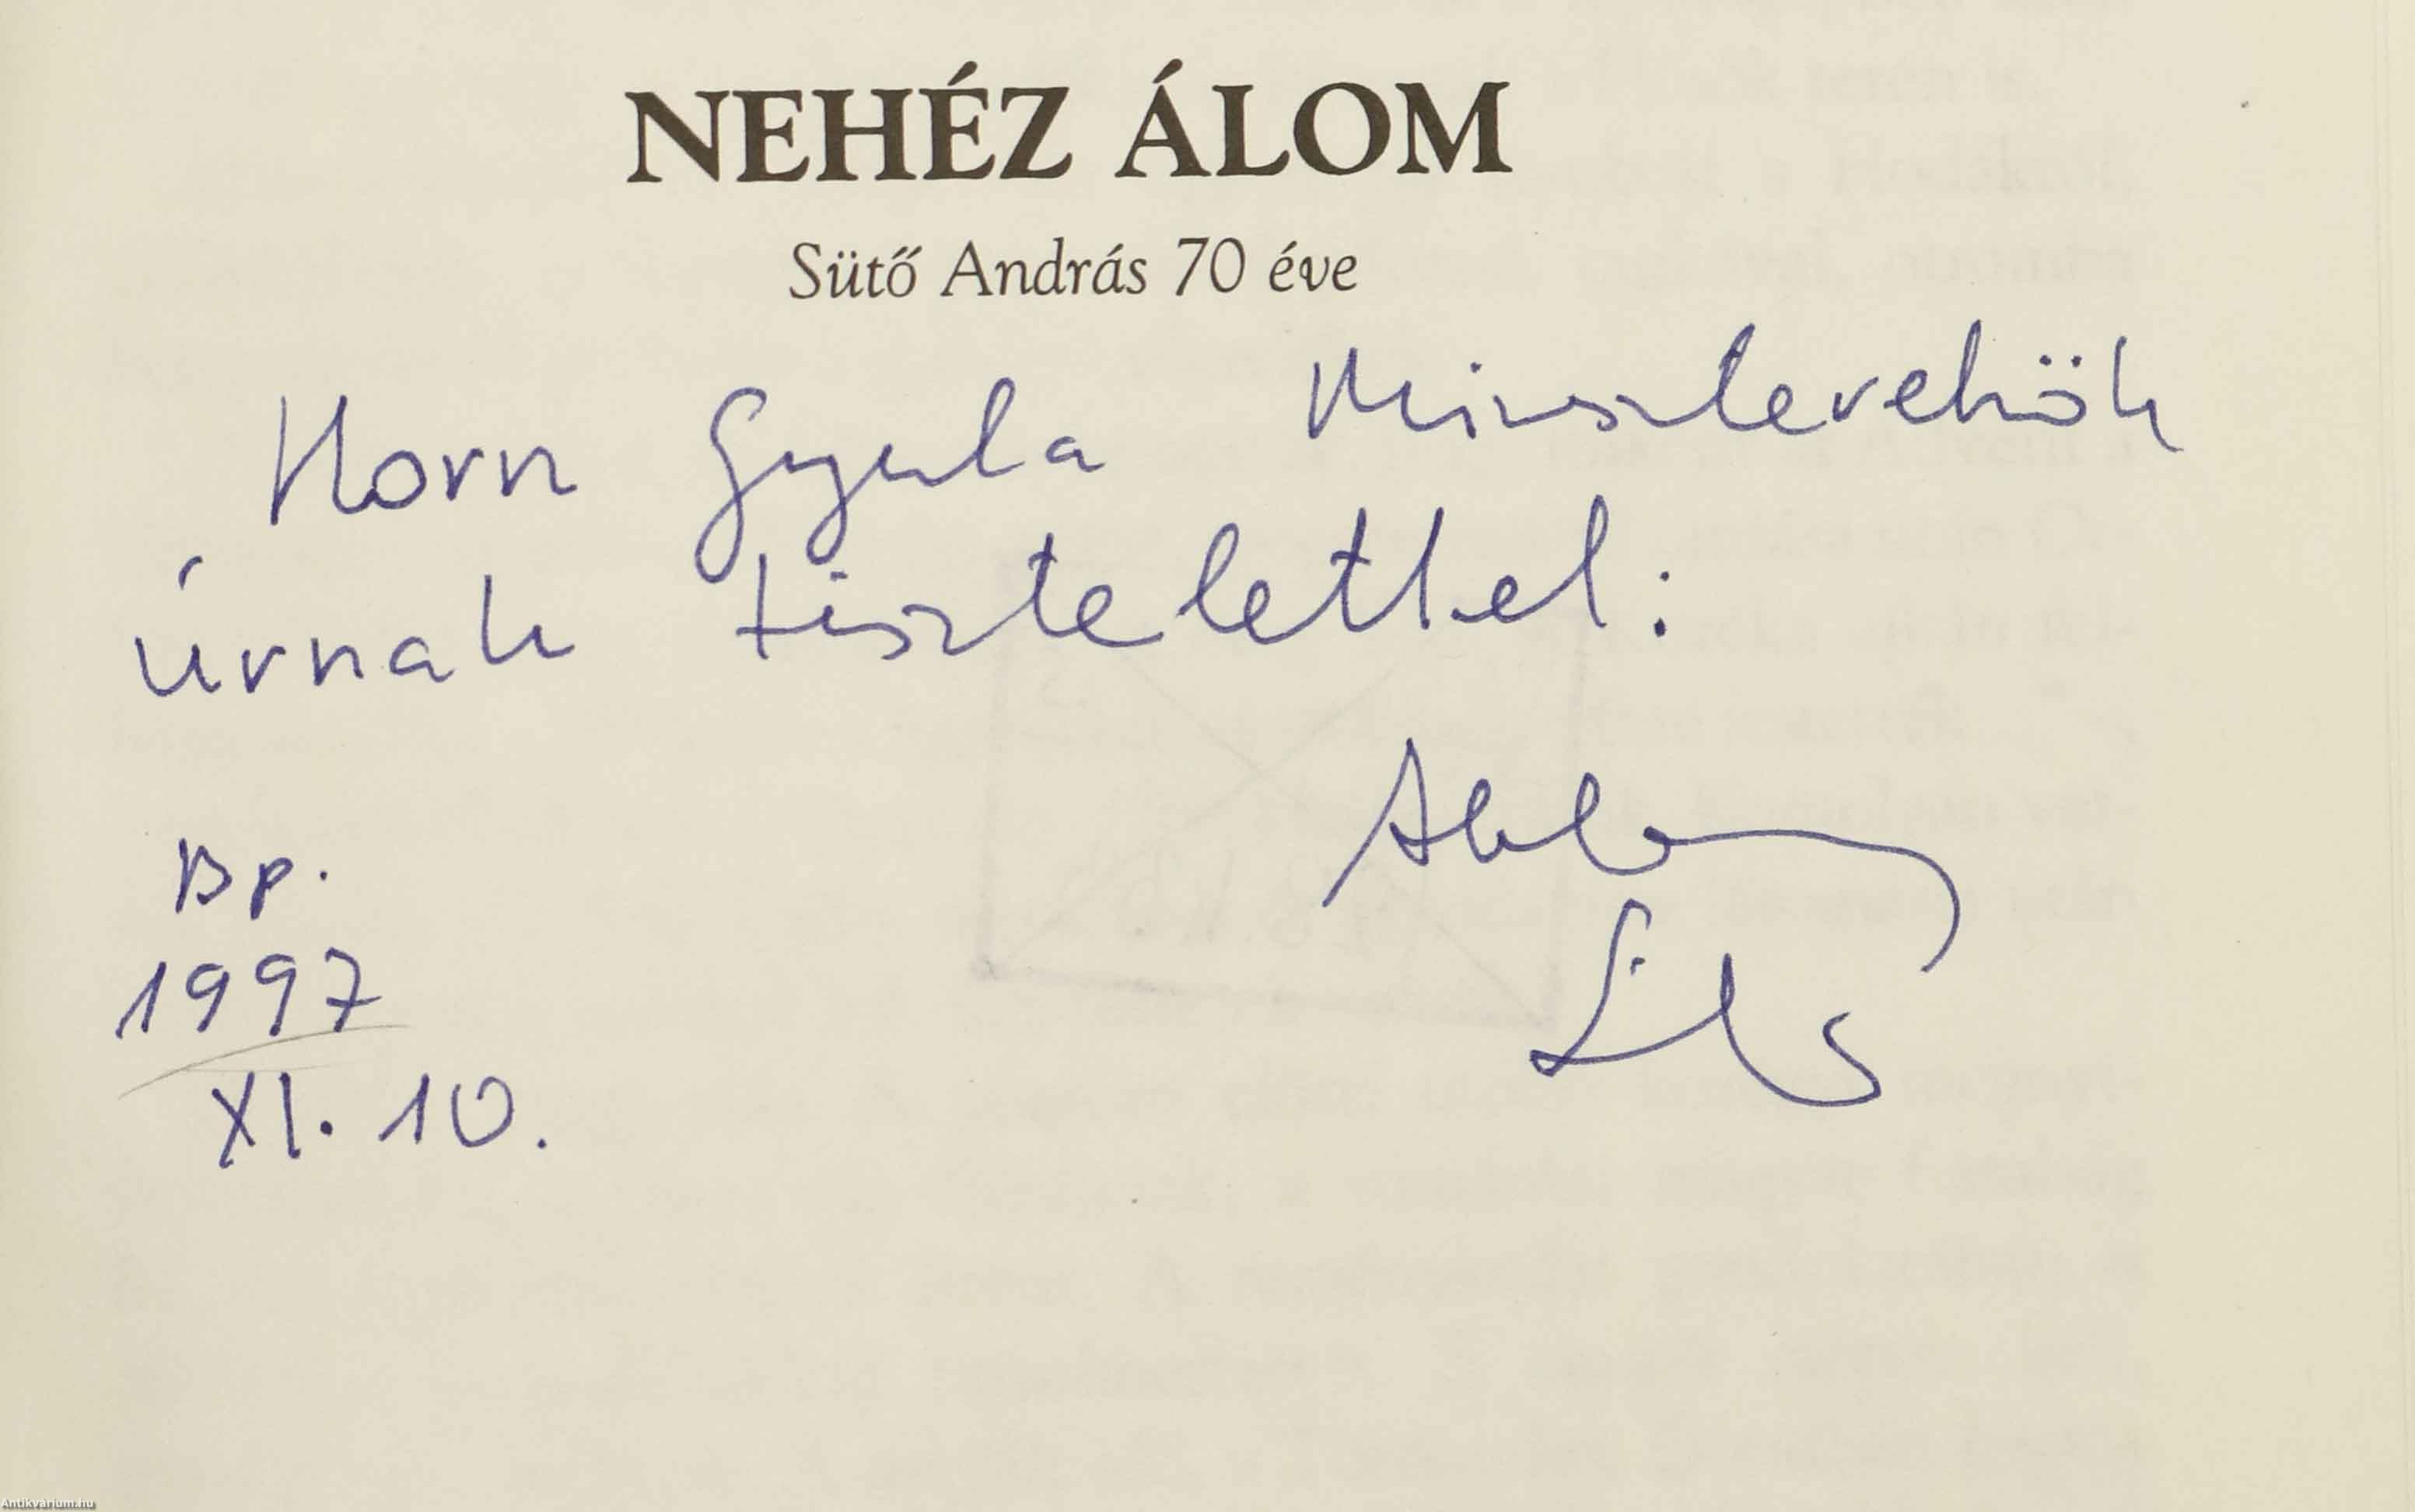 NEHÉZ ÁLOM
Sütő András 70 éve
Horn Gyula Miniszterelnök
úrnak tisztelettel:
Ablonczy
Bp.
1997
XI. 10.
Antikvárium.hu